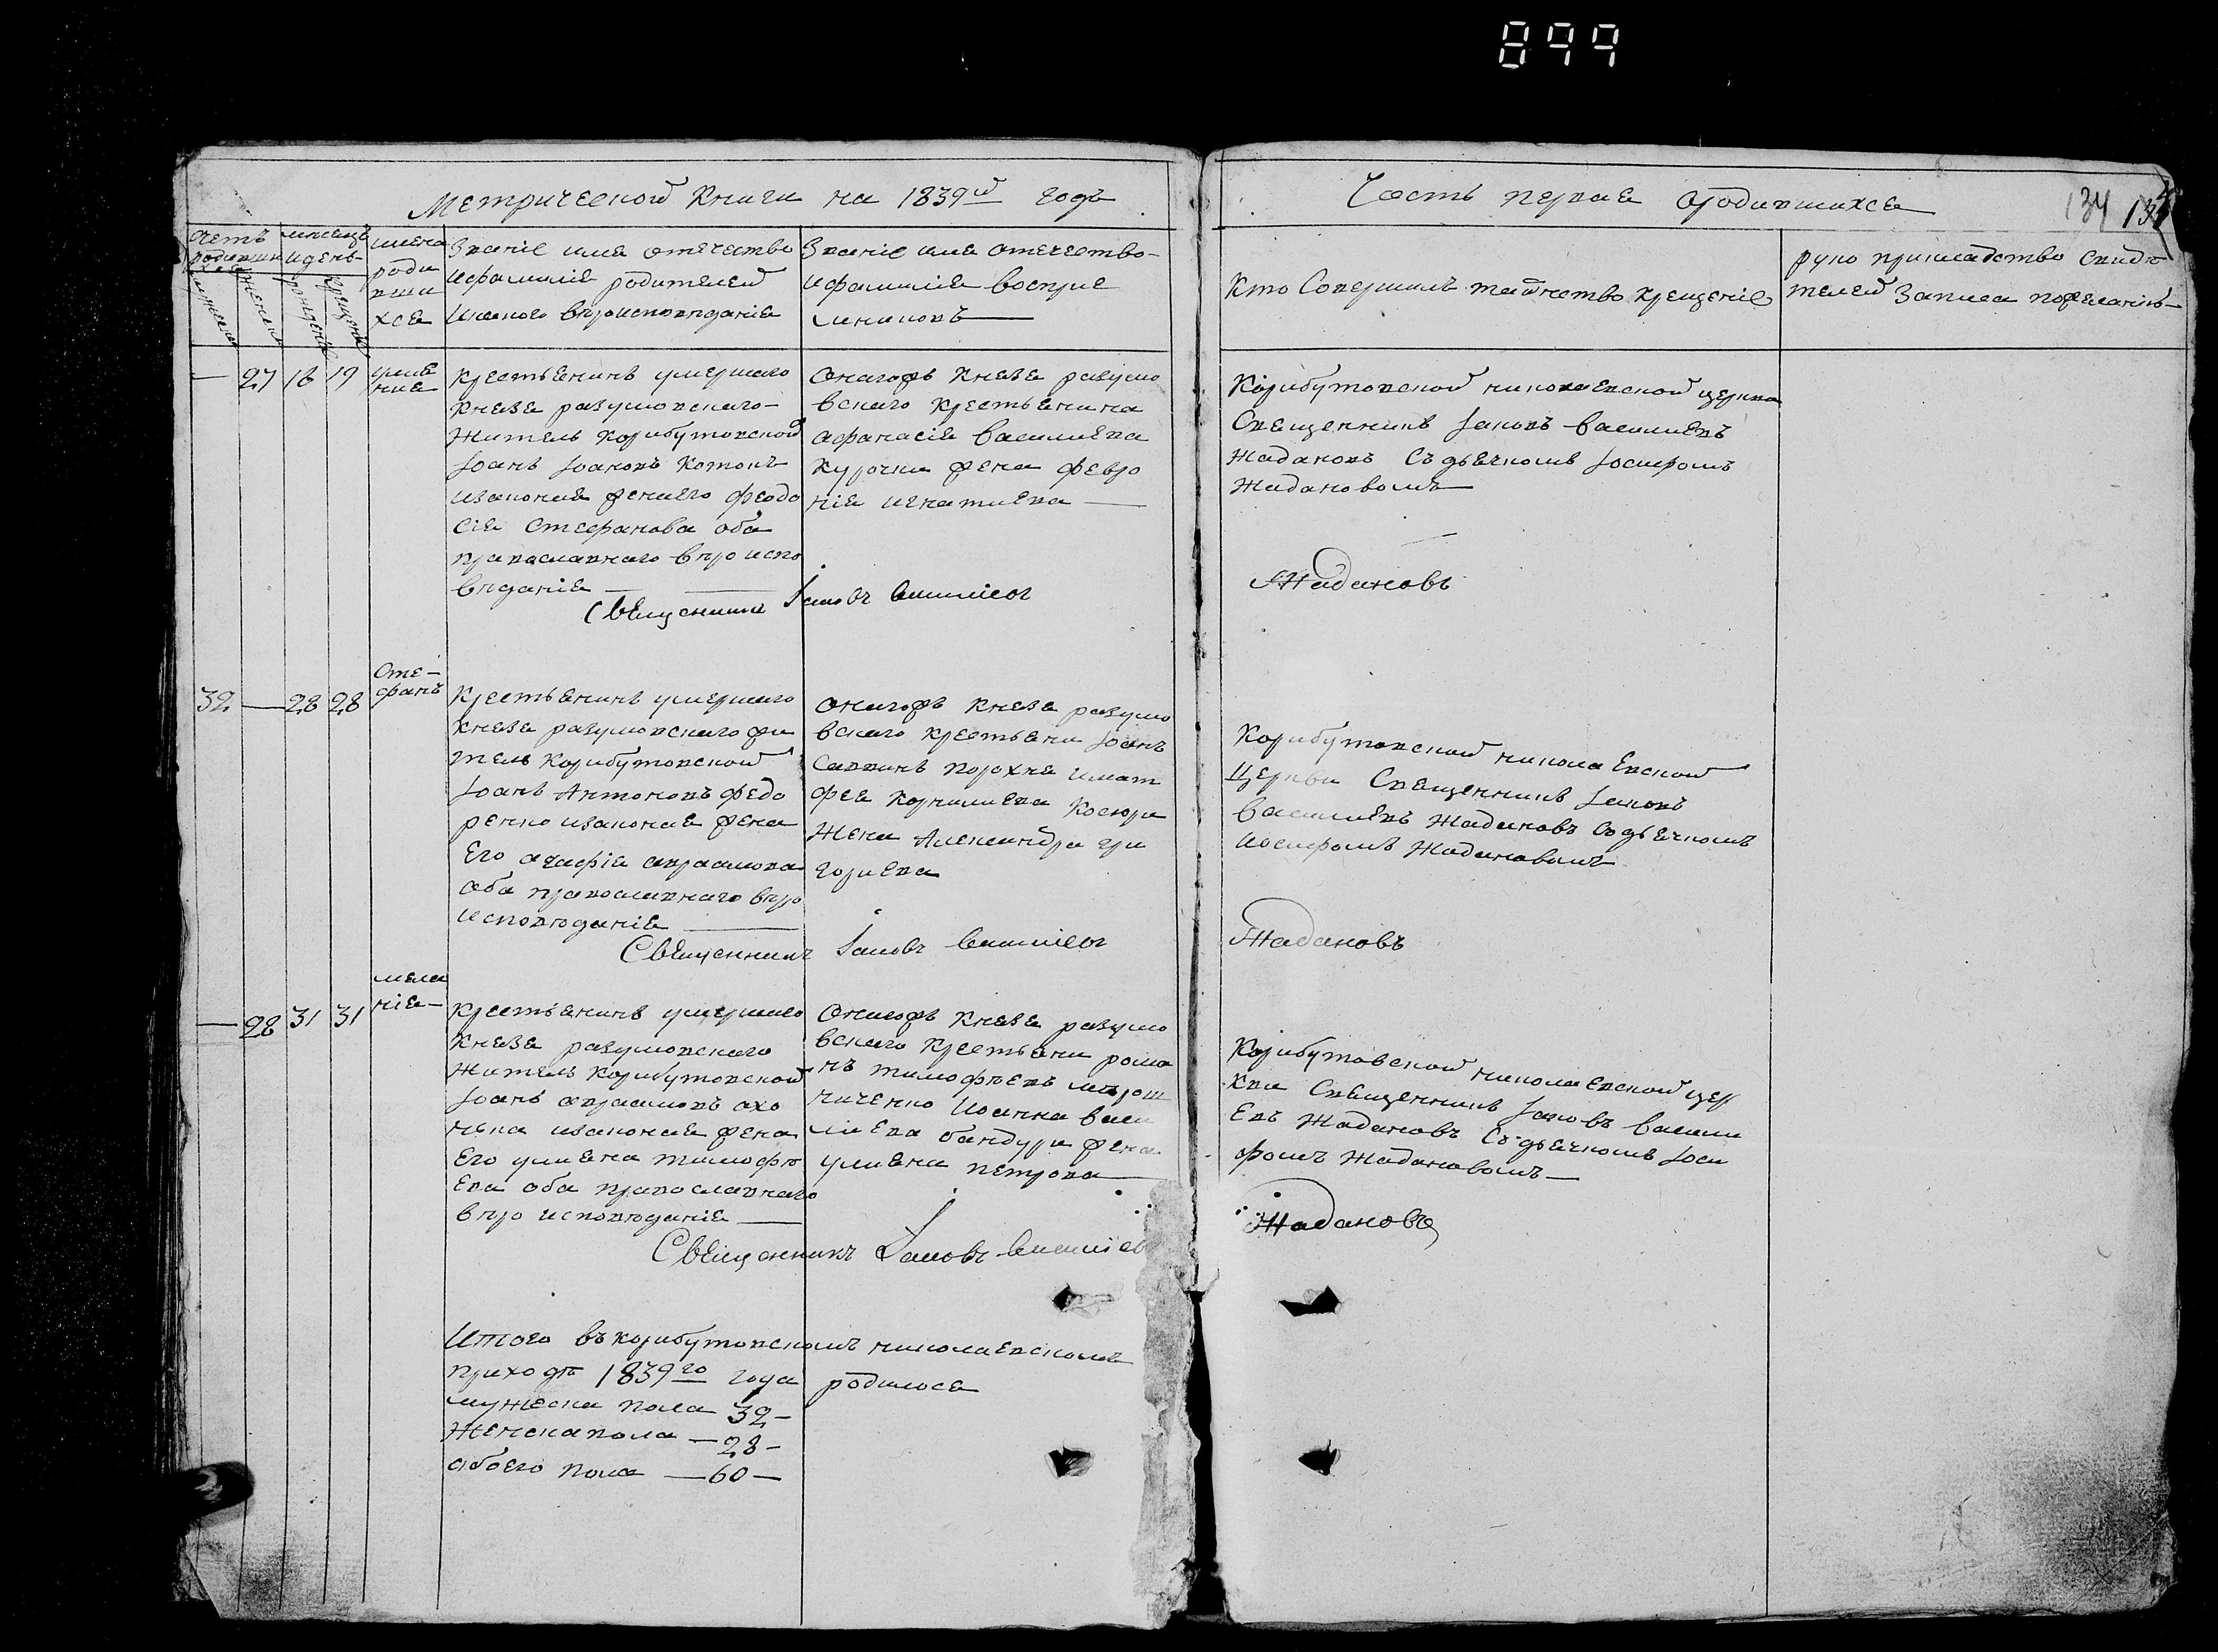 899
Метрической Книги на 1839й годъ
Часть первая о родившихся
134
счетъ родившихся
мужеска
женска
месецъ и день
рожденія
крещенія
имена
роди
вши
хся
Званіе имя отечество
и фамилія родителей
и какого вѣроисповѣданія
Званіе имя отечество
и фамилія воспріе
мниковъ
Кто Совершилъ таинство крещенія
руко прикладство свидѣ
телей Записа по желанію
— 27 16 19
улия
ния
крестьянинъ умершаго
князя разумовскаго
Житель Корибутовской
Іоанъ Іоановъ Котокъ
изаконая жена его феодо
сія Стефанова оба
православнаго вѣро испо
вѣданія
онагожъ Князя разумо
вскаго крестьянина
афанасія василиева
Курочки жена февро
нія игнатиева
Корибутовской николаевской церкви
Священникъ Іаковъ василиевъ
Жадановъ Съ дьячкомъ Іосифомъ
Жадановомъ
Священникъ Іаковъ Василіевъ
Жадановъ
32 — 28 28
Сте-
фанъ
Крестьянинъ умершаго
князя разумовскаго жи
тель Корибутовской
Іоанъ Антоновъ федо
ренко изаконая жена
Его агафія авраамова
оба православнаго вѣро
исповѣданія
онагожъ князя разумо
вскаго крестьяни Іоанъ
Саввинъ порохня имат
фея Корнилиева Косюри
Жена Александра гри
гориева
Корибутовской николаевской
Церкви Священникъ Іаковъ
василиевъ Жадановъ Содьячкомъ
иосифомъ Жадановомъ
Священникъ Іаковъ Василіевъ
Жадановъ
— 28 31 31
мела
нія
крестьянинъ умершаго
князя разумовскаго
Житель Корибутовской
Іоанъ авраамовъ
изаконая жена
Его улияна тимофѣ
Ева оба православнаго
вѣро исповѣданія
Онагожъ Князя разумо
вскаго крестьяни рома
нъ тимофѣевъ мирош
ниченко Иоанна васи
лиева бандури жена
улияна петрова
Корибутовской николаевской цер
кви Священникъ Іаковъ васили
Евъ Жадановъ Съ дьячкомъ Іоси
фомъ Жадановомъ
Священникъ Іаковъ Василіев
Жадановъ
Итого въ корибутовскомъ николаевскомъ
приходѣ 1839го года родилося
мужеска пола 32-
Женска пола — 28-
обоего пола — 60 —